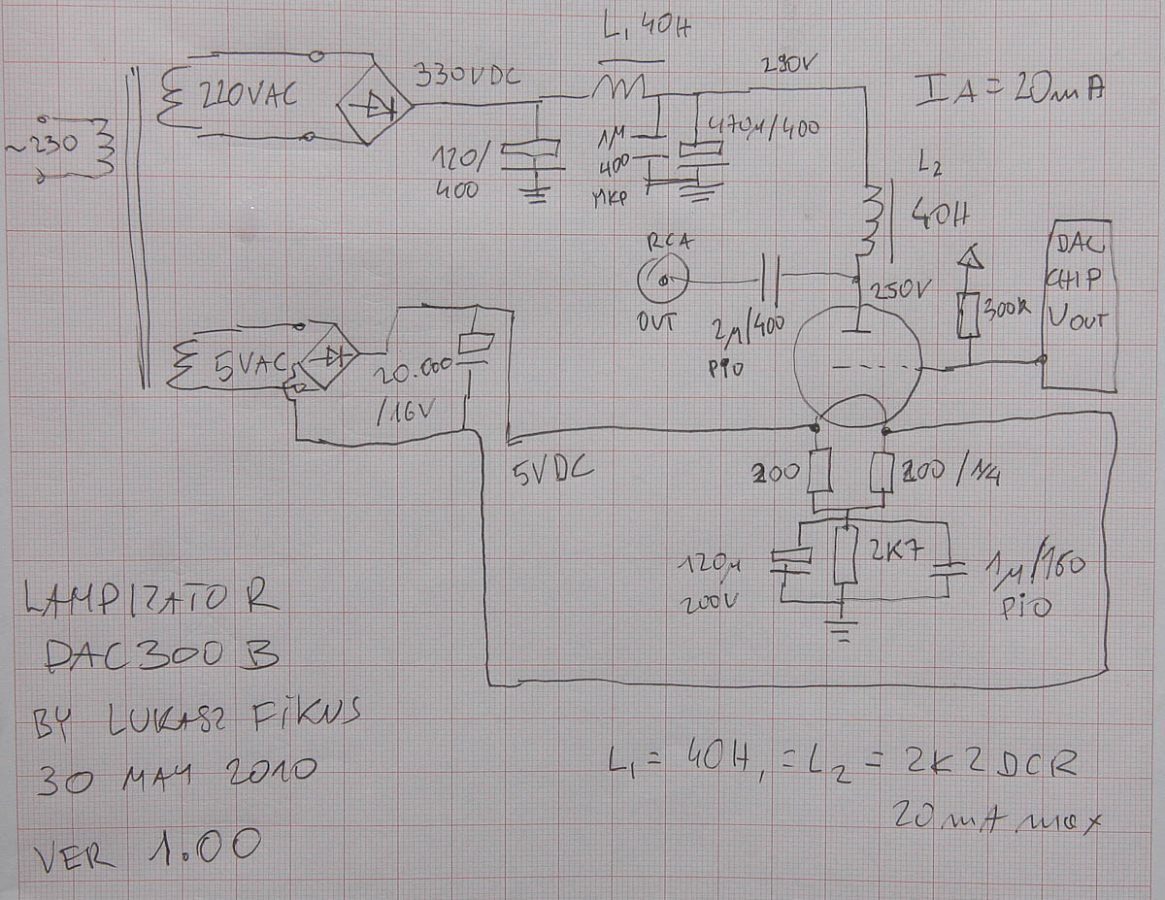 L1 40H
220VAC
330VDC
290V
IA = 20mA
~230
120/
400
1µ
400
MKP
470µ/400
L2
40H
RCA
OUT
2µ/400
PIO
250V
300k
DAC
CHIP
VOUT
5VAC
20.000
/16V
5VDC
200
200 /1/4
120µ
200V
2K7
1µ/160
PiO
LAMPIZATOR
DAC 300 B
BY LUKASZ FiKUS
30 MAY 2010
VER 1.00
L1 = 40H, = L2 = 2K2 DCR
20 mA max